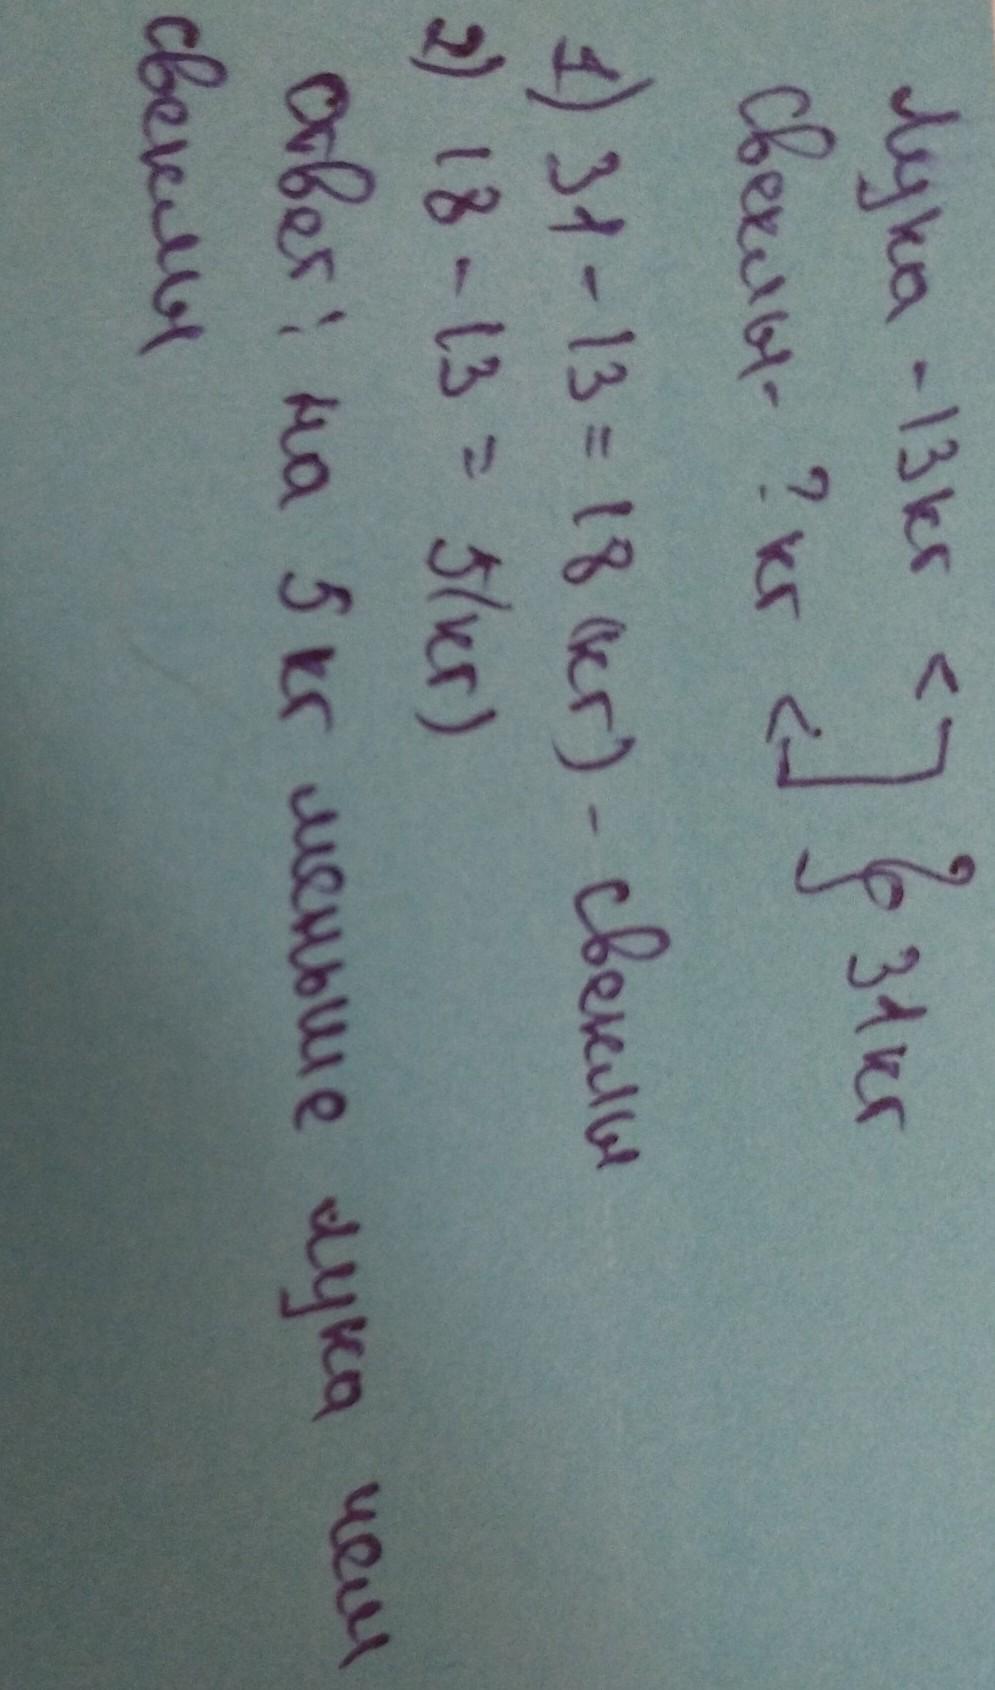 Лука - 13кг < ] } 31кг
Свеклы - ? кг <
1) 31 - 13 = 18 (кг) - свеклы
2) 18 - 13 = 5 (кг)
Ответ: на 5 кг меньше лука чем
свеклы